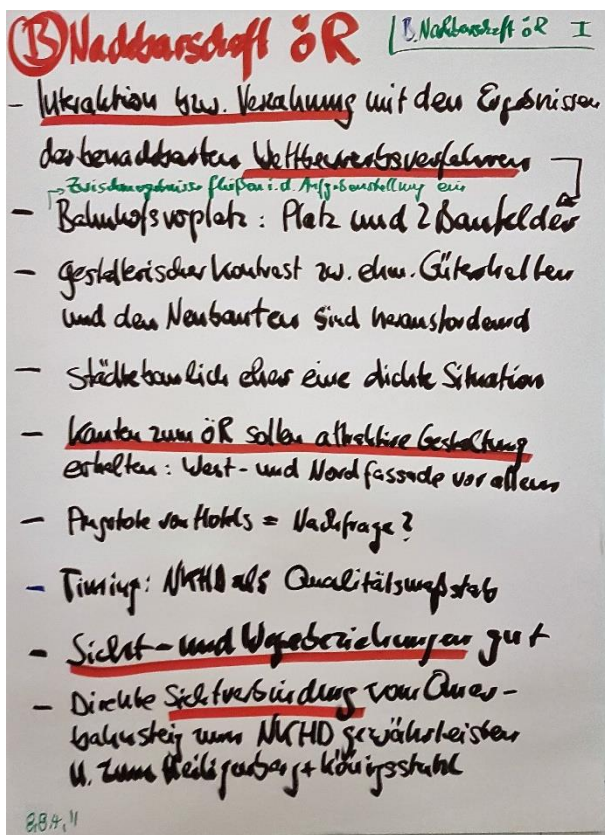 Ⓑ Nachbarschaft öR
B. Nachbarschaft öR I
- Interaktion bzw. Verzahnung mit den Ergebnissen
des benachbarten Wettbewerbsverfahren
→ Zwischenergebnisse fließen i.d. Aufgabenstellung ein
- Bahnhofsvoplatz: Platz und 2 Baufelder
- gestalterischer Kontrast zw. ehm. Güterhallen
und den Neubauten sind herausfordernd
- städtebaulich eher eine dichte Situation
- Kanten zum öR sollen attraktive Gestaltung
erhalten: West- und Nordfassade vor allem
- Angebote von Hotels = Nachfrage?
- Timing: NKHD als Qualitätsmaßstab
- Sicht- und Wegebeziehungen gut
- Direkte Sichtverbindung vom Quer-
bahnsteig zum NKHD gewährleisten
u. zum Heiligenberg + Königsstuhl